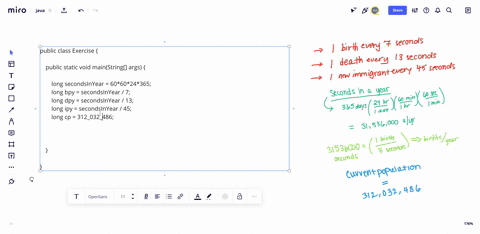 miro
java
Share
public class Exercise {
public static void main(String[] args) {
long secondsInYear = 60*60*24*365;
long bpy = secondsInYear / 7;
long dpy = secondsInYear / 13;
long ipy = secondsInYear / 45;
long cp = 312_032_486;
}
}
→ 1 birth every 7 seconds
→ 1 death every 13 seconds
→ 1 new immigrant every 45 seconds
Seconds in a year
365 days (24 hr / 1 day) (60 min / 1 hr) (60 sec / 1 min)
= 31,536,000 s/yr
31536000 seconds = (1 birth / 7 seconds) => births/year
Current population
=
312,032,486
OpenSans